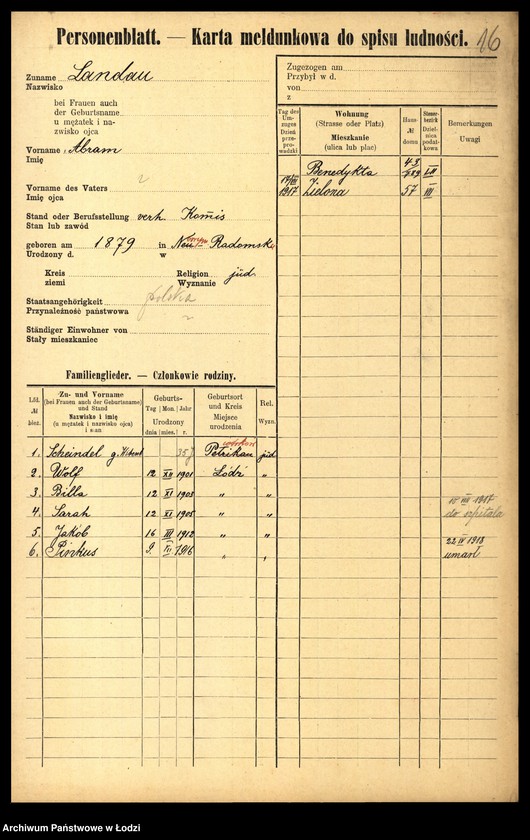 Personenblatt. — Karta meldunkowa do spisu ludności. 16
Zuname Landau
Nazwisko
bei Frauen auch
der Geburtsname
u mężatek i na-
zwisko ojca
Vorname Abram
Imię
Vorname des Vaters
Imię ojca
Stand oder Berufsstellung verh. Komis
Stan lub zawód
geboren am 1879 in Neu Radomsk
Urodzony d. w
Kreis
ziemi
Religion jüd
Wyznanie
Staatsangehörigkeit polska
Przynależność państwowa
Ständiger Einwohner von
Stały mieszkaniec
Zugezogen am
Przybył w d.
von
z
Tag des Umzuges
Dzień przeprowadzki
Wohnung
(Strasse oder Platz)
Mieszkanie
(ulica lub plac)
Haus-
№
domu
Steuerbezirk
Dzielnica podatkowa
Bemerkungen
Uwagi
Benedykta 43
789 LII
14/VIII 1917 Zielona 57 III
Familienglieder. — Członkowie rodziny.
Lfd.
№
bież.
Zu- und Vorname
(bei Frauen auch der Geburtsname)
und Stand
Nazwisko i imię
(u mężatek i nazwisko ojca)
i stan
Geburts-
Tag Mon. Jahr
Urodzony
dnia mies. r.
Geburtsort
und Kreis
Miejsce
urodzenia
Rel.
Wyzn.
1. Scheindel g. 35 j Petrikau jüd
2. Wolf 12 XII 1901 Łódź "
3. Billa 12 XI 1903 " "
4. Sarah 12 XI 1905 " " VIII 1917 do szpitala
5. Jakob 16 III 1912 " "
6. Pinkus 9. III 1916 " " 22 IV 1918 umarł
Archiwum Państwowe w Łodzi